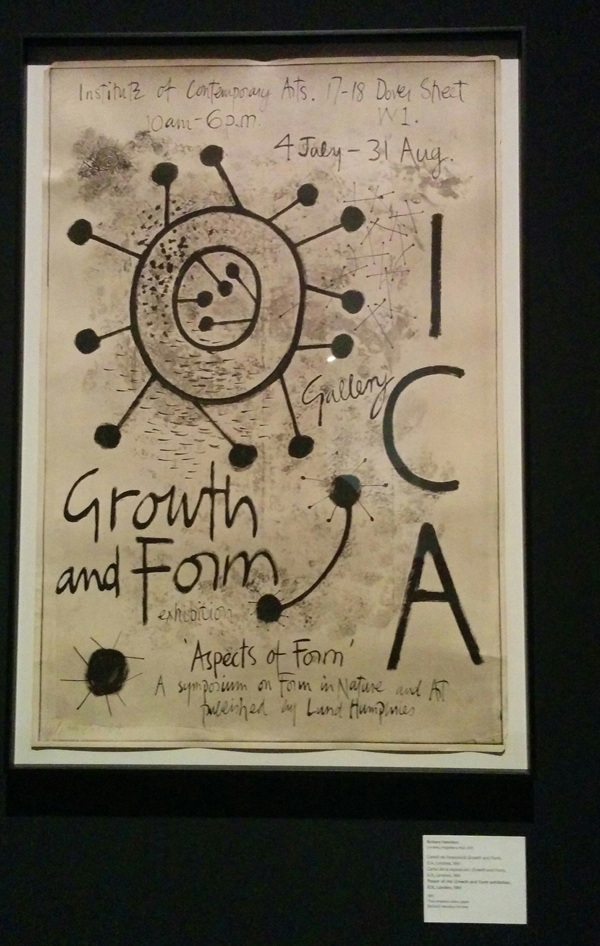 Institute of Contemporary Arts. 17-18 Dover Street
10am-6p.m. W1.
4 July - 31 Aug.
I
C
A
Gallery
Growth
and Form
exhibition
'Aspects of Form'
A symposium on Form in Nature and Art
published by Lund Humphries
Richard Hamilton